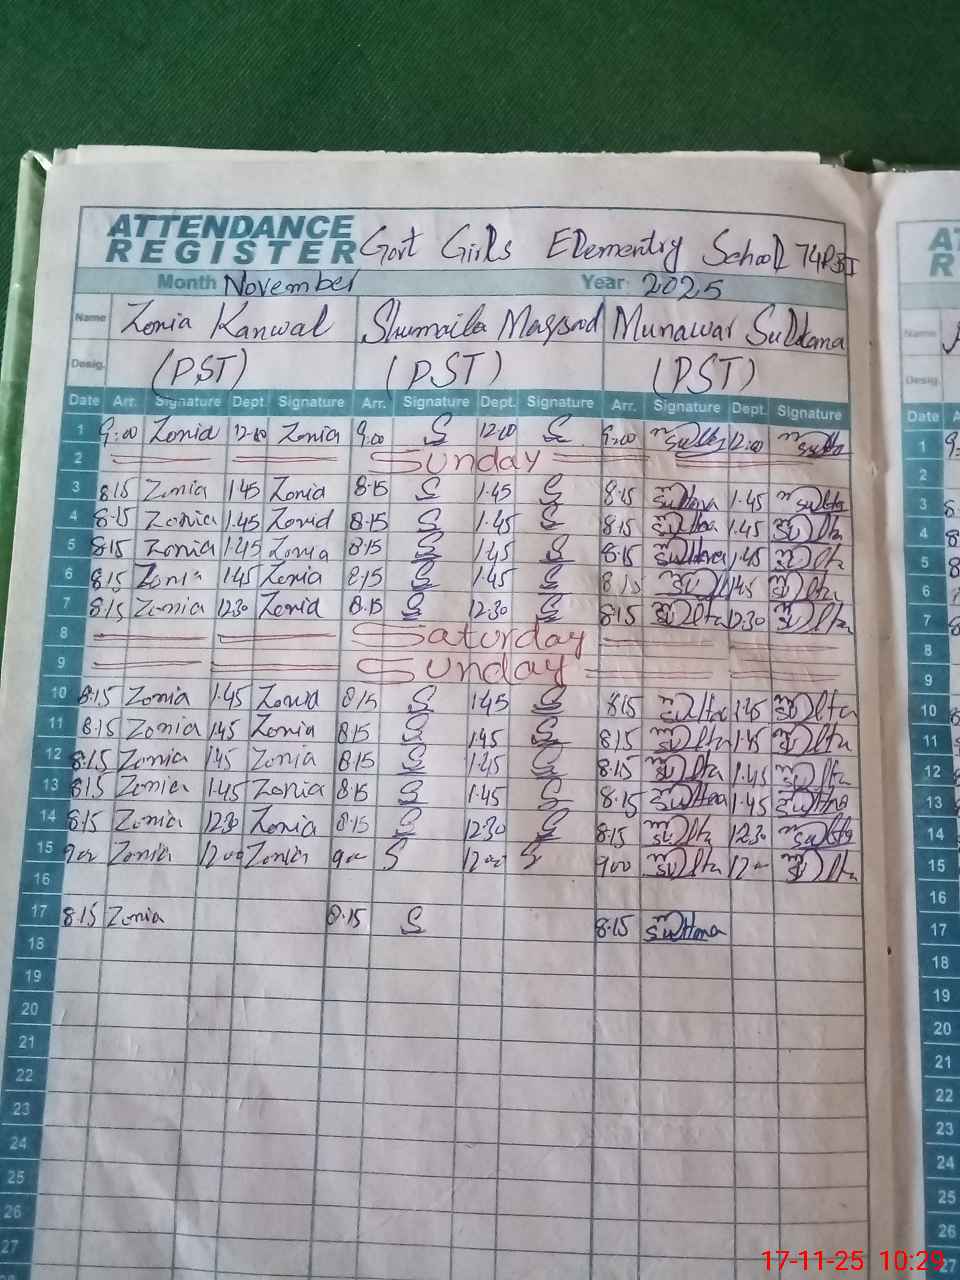 ATTENDANCE
REGISTER Govt Girls Elementry School 74P
Month November Year: 2025
Name Zonia Kanwal Shumaila Maqsood Munawar Sultana
Desig. (PST) (PST) (PST)
Date Arr. Signature Dept. Signature Arr. Signature Dept. Signature Arr. Signature Dept. Signature
1 9:00 Zonia 12:00 Zonia 9:00 S 12:00 S 9:00 12:00
2 Sunday
3 8:15 Zonia 1.45 Zonia 8.15 S 1.45 S 8.15 1.45
4 8.15 Zonia 1.45 Zonia 8.15 S 1.45 S 8.15 1.45
5 8.15 Zonia 1.45 Zonia 8.15 S 1.45 S 8.15 1.45
6 8.15 Zonia 1.45 Zonia 8.15 S 1.45 S 8.15 1.45
7 8.15 Zonia 12.30 Zonia 8.15 S 12.30 S 8.15 12.30
8 Saturday
9 Sunday
10 8.15 Zonia 1.45 Zonia 8.15 S 1.45 S 8.15 1.45
11 8.15 Zonia 1.45 Zonia 8.15 S 1.45 S 8.15 1.45
12 8.15 Zonia 1.45 Zonia 8.15 S 1.45 S 8.15 1.45
13 8.15 Zonia 1.45 Zonia 8.15 S 1.45 S 8.15 1.45
14 8.15 Zonia 12.30 Zonia 8.15 S 12.30 S 8.15 12.30
15 9.00 Zonia 12.00 Zonia 9.00 S 12.00 S 9.00 12.00
16
17 8.15 Zonia 8.15 S 8.15
18
19
20
21
22
23
24
25
26
27
17-11-25 10:29